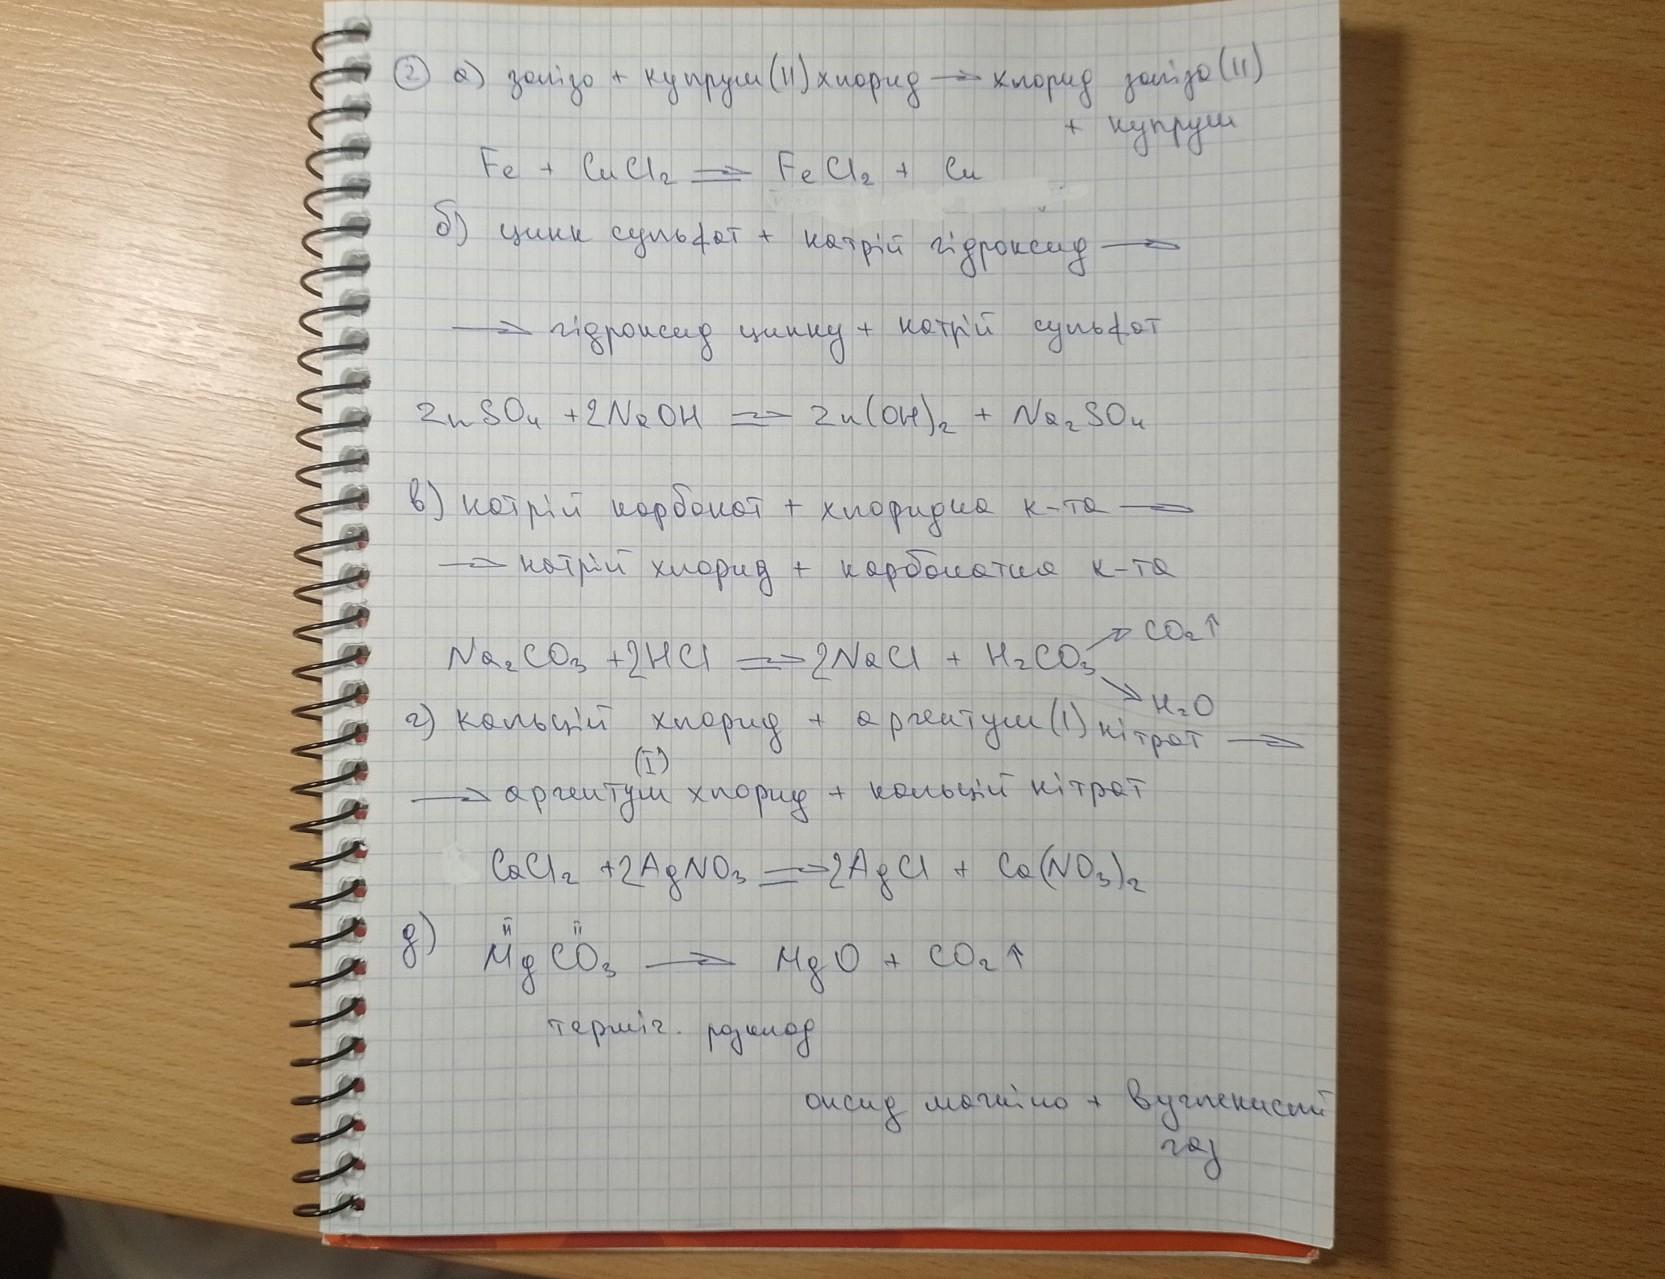 ② а) залізо + купрум(II) хлорид → хлорид заліза(II)
+ купрум
Fe + CuCl₂ ⟶ FeCl₂ + Cu
б) цинк сульфат + натрій гідроксид →
→ гідроксид цинку + натрій сульфат
ZnSO₄ + 2NaOH ⟶ Zn(OH)₂ + Na₂SO₄
в) натрій карбонат + хлоридна к-та →
→ натрій хлорид + карбонатна к-та
Na₂CO₃ + 2HCl ⟶ 2NaCl + H₂CO₃ ↗ CO₂↑
↘ H₂O
г) кальцій хлорид + аргентум(I) нітрат →
→ аргентум (I) хлорид + кальцій нітрат
CaCl₂ + 2AgNO₃ ⟶ 2AgCl + Ca(NO₃)₂
II II
д) MgCO₃ → MgO + CO₂↑
терміч. розклад
оксид магнію + вуглекислий
газ